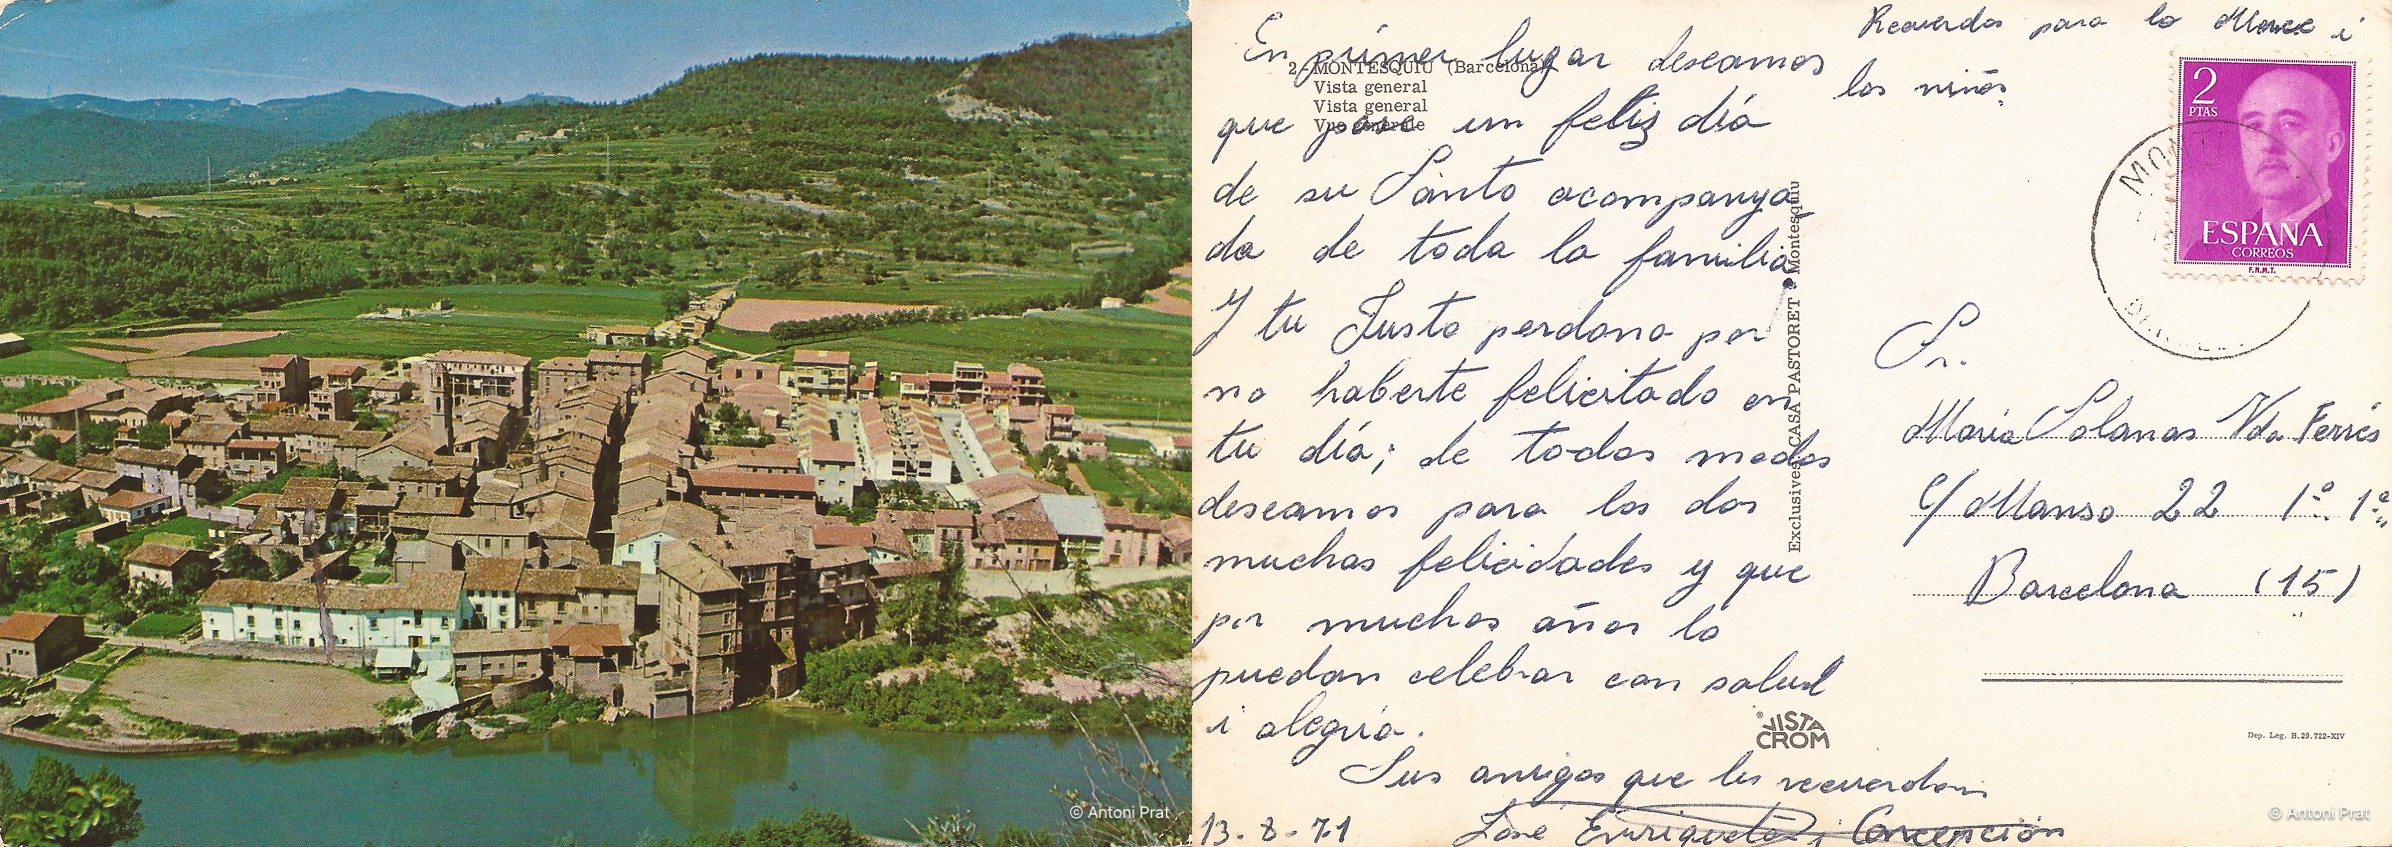 © Antoni Prat
En primer lugar deseamos
que pase un feliz día
de su Santo acompanya
da de toda la familia.
Y tu Justo perdona por
no haberte felicitado en
tu día; de todos modos
deseamos para los dos
muchas felicidades y que
por muchos años lo
puedan celebrar con salud
i alegria.
Sus amigos que les recuerdan
José Enriqueta i Concepción
13-8-71
Recuerdos para la Merce i
los niños
2 - MONTESQUIU (Barcelona)
Vista general
Vista general
Vue générale
Exclusives CASA PASTORET - Montesquiu
2
PTAS
ESPAÑA
CORREOS
F.N.M.T.
Sr.
María Solanas Vda Ferrés
C/ Manso 22 1º 1ª
Barcelona (15)
VISTA
CROM
Dep. Leg. B.29.722-XIV
© Antoni Prat